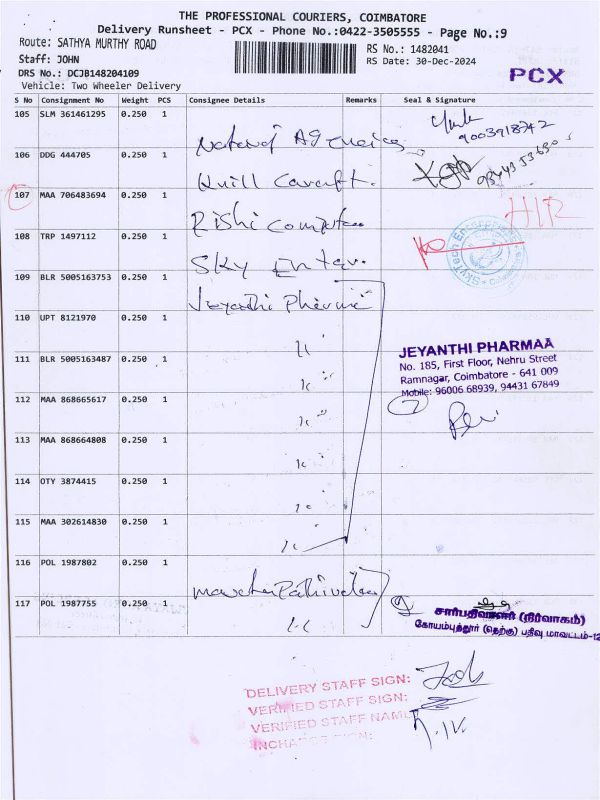 THE PROFESSIONAL COURIERS, COIMBATORE
Delivery Runsheet - PCX - Phone No.:0422-3505555 - Page No.:9
Route: SATHYA MURTHY ROAD
RS No.: 1482041
Staff: JOHN
RS Date: 30-Dec-2024
DRS No.: DCJB148204109
PCX
Vehicle: Two Wheeler Delivery
S No Consignment No Weight PCS Consignee Details Remarks Seal & Signature
105 SLM 361461295 0.250 1
9003918742
106 DDG 444705 0.250 1
107 MAA 706483694 0.250 1
108 TRP 1497112 0.250 1 Rishi
109 BLR 5005163753 0.250 1 Sky Enter.
Jeyanthi Pharma
110 UPT 8121970 0.250 1
111 BLR 5005163487 0.250 1
JEYANTHI PHARMAA
No. 185, First Floor, Nehru Street
Ramnagar, Coimbatore - 641 009
Mobile: 96006 68939, 94431 67849
112 MAA 868665617 0.250 1
7
113 MAA 868664808 0.250 1
114 OTY 3874415 0.250 1
115 MAA 302614830 0.250 1
116 POL 1987802 0.250 1
117 POL 1987755 0.250 1
சார்பதிவாளர் (நிர்வாகம்)
கோயம்புத்தூர் (தெற்கு) பதிவு மாவட்டம்-12
DELIVERY STAFF SIGN:
VERIFIED STAFF SIGN:
VERIFIED STAFF NAME
INCHARGE SIGN: